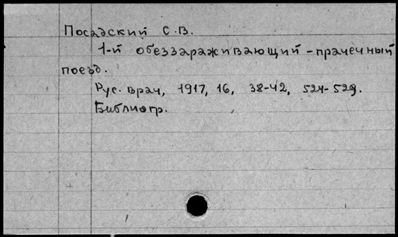 Посадский С.В.
1-й обеззараживающий-прачечный
поезд.
Рус. врач, 1917, 16, 38-42, 524-529.
Библиогр.